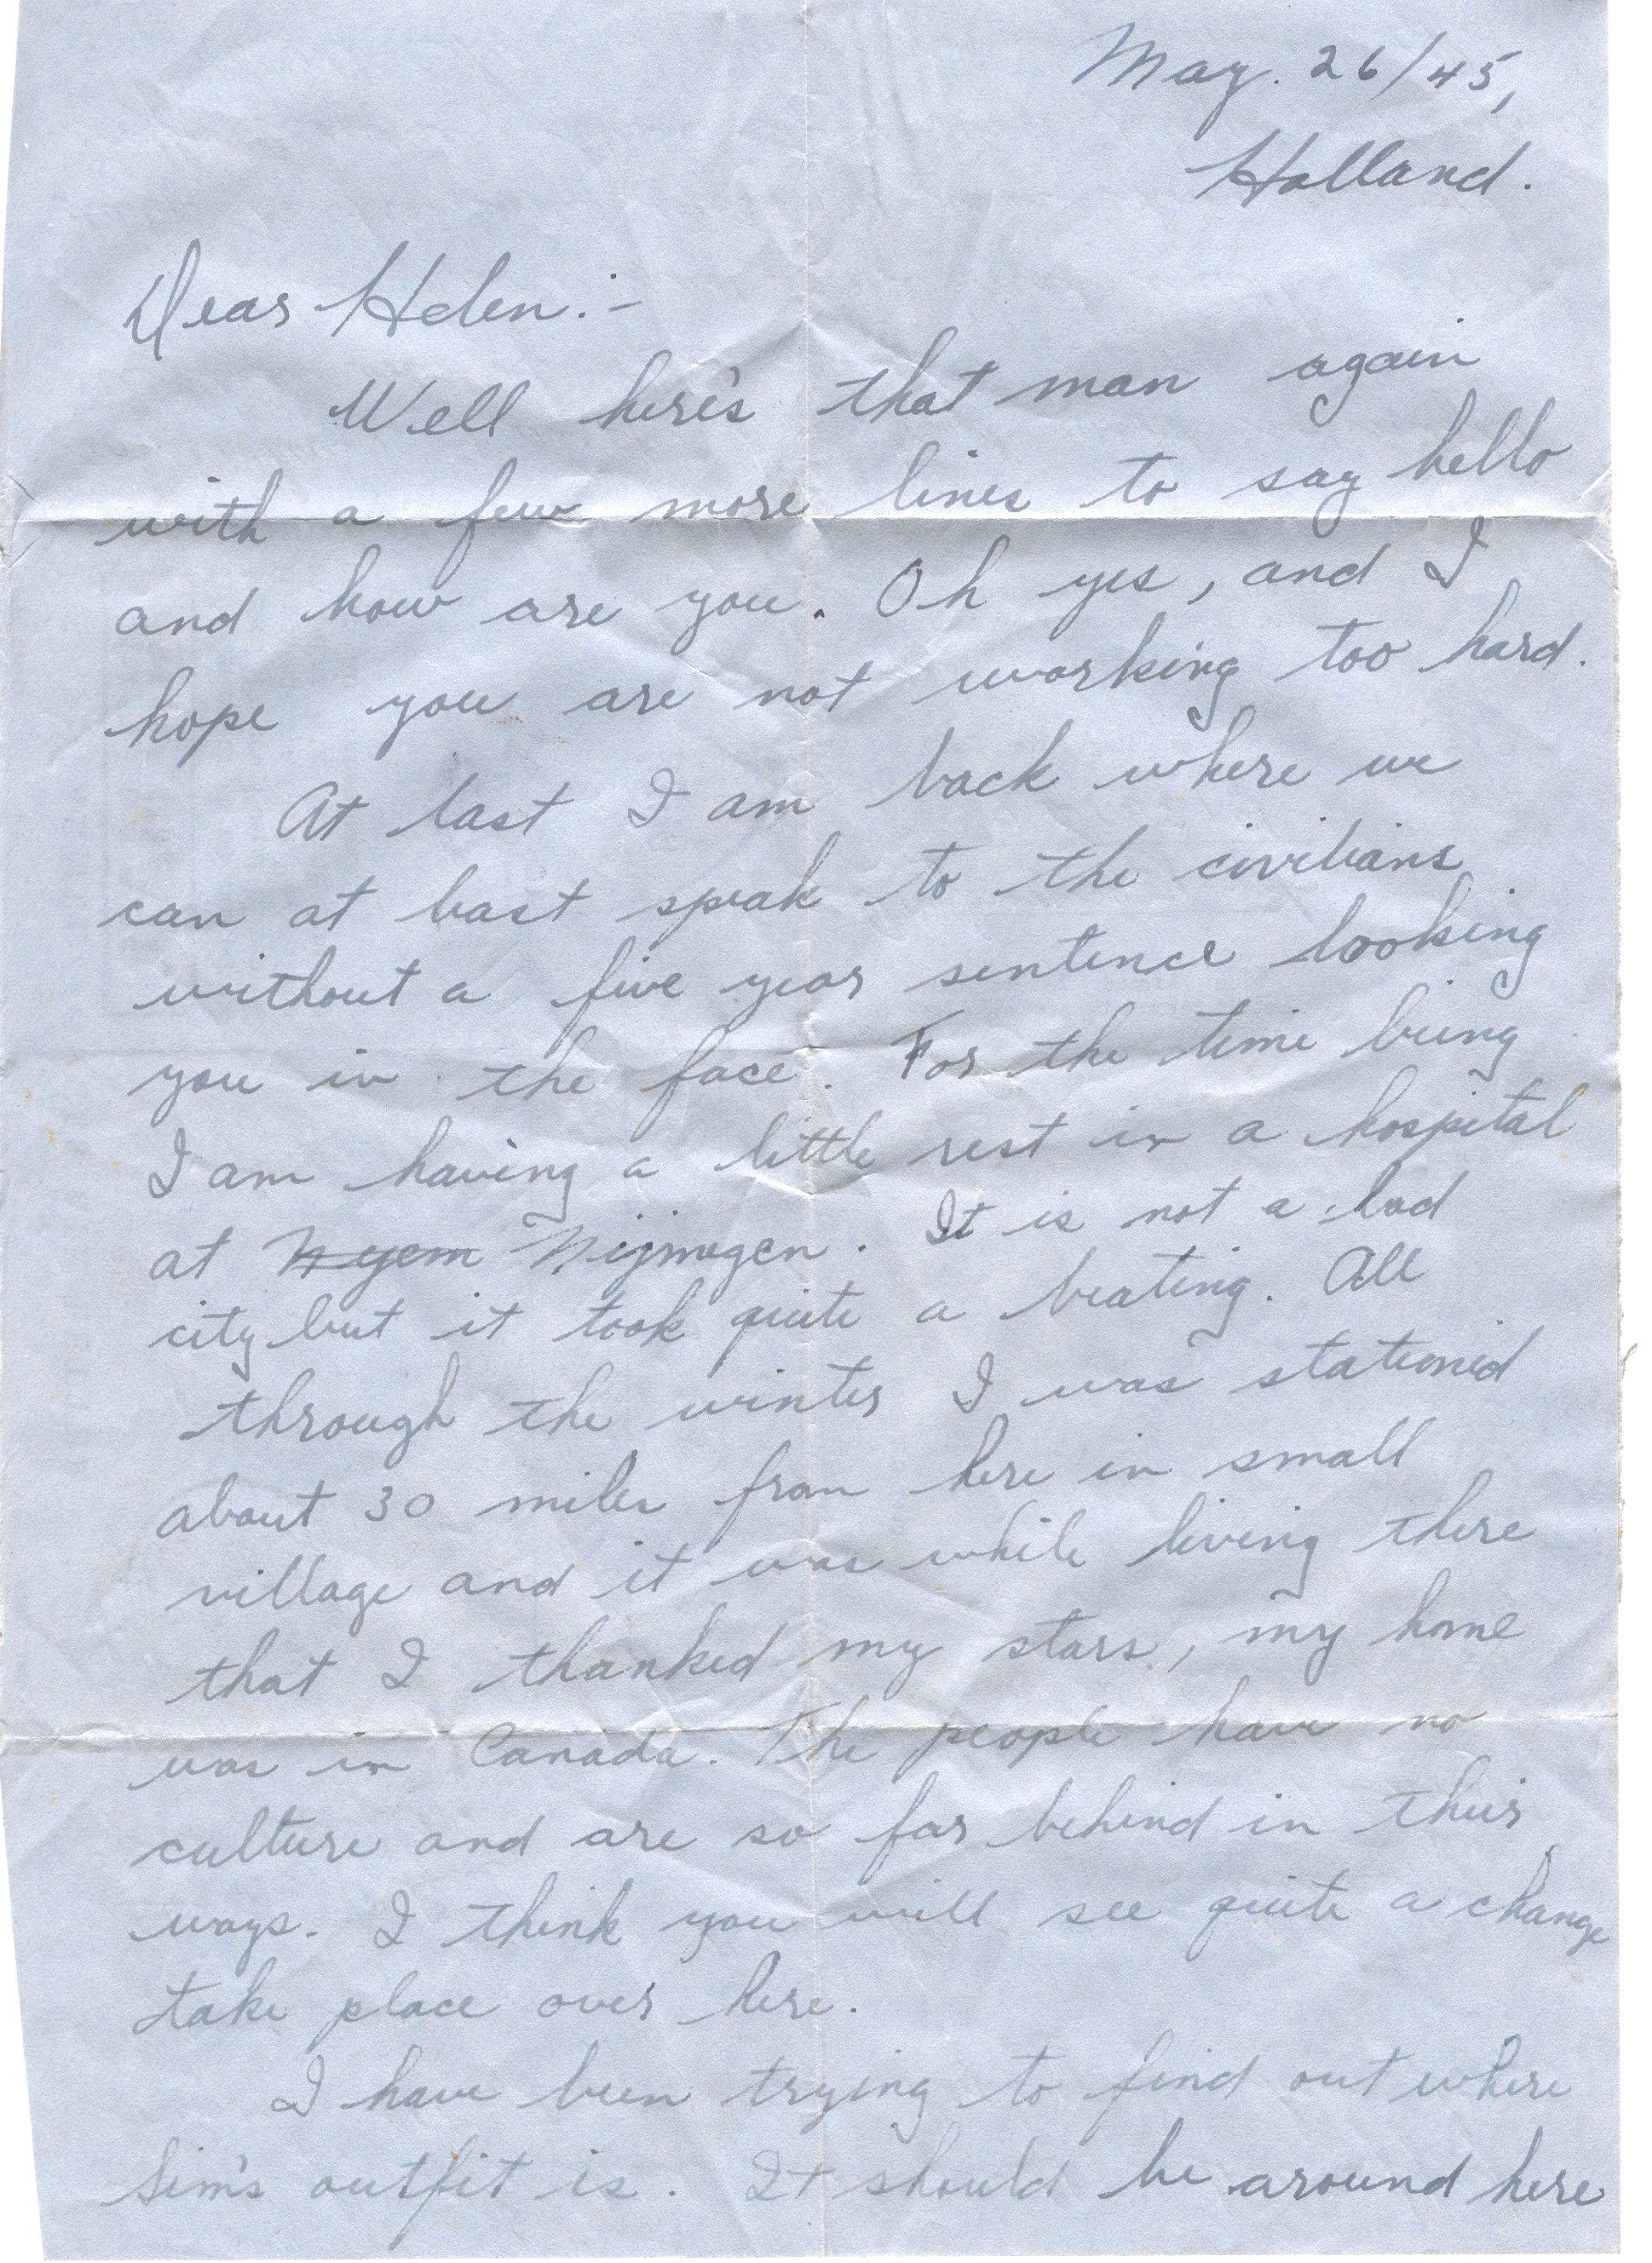 May. 26/45,
Holland.
Dear Helen:-
Well here's that man again
with a few more lines to say hello
and how are you. Oh yes, and I
hope you are not working too hard.
At last I am back where we
can at least speak to the civilians
without a five year sentence looking
you in the face. For the time being
I am having a little rest in a hospital
at Nyem Nijmegen. It is not a bad
city but it took quite a beating. All
through the winter I was stationed
about 30 miles from here in small
village and it was while living there
that I thanked my stars, my home
was in Canada. The people have no
culture and are so far behind in their
ways. I think you will see quite a change
take place over here.
I have been trying to find out where
outfit is. It should be around here